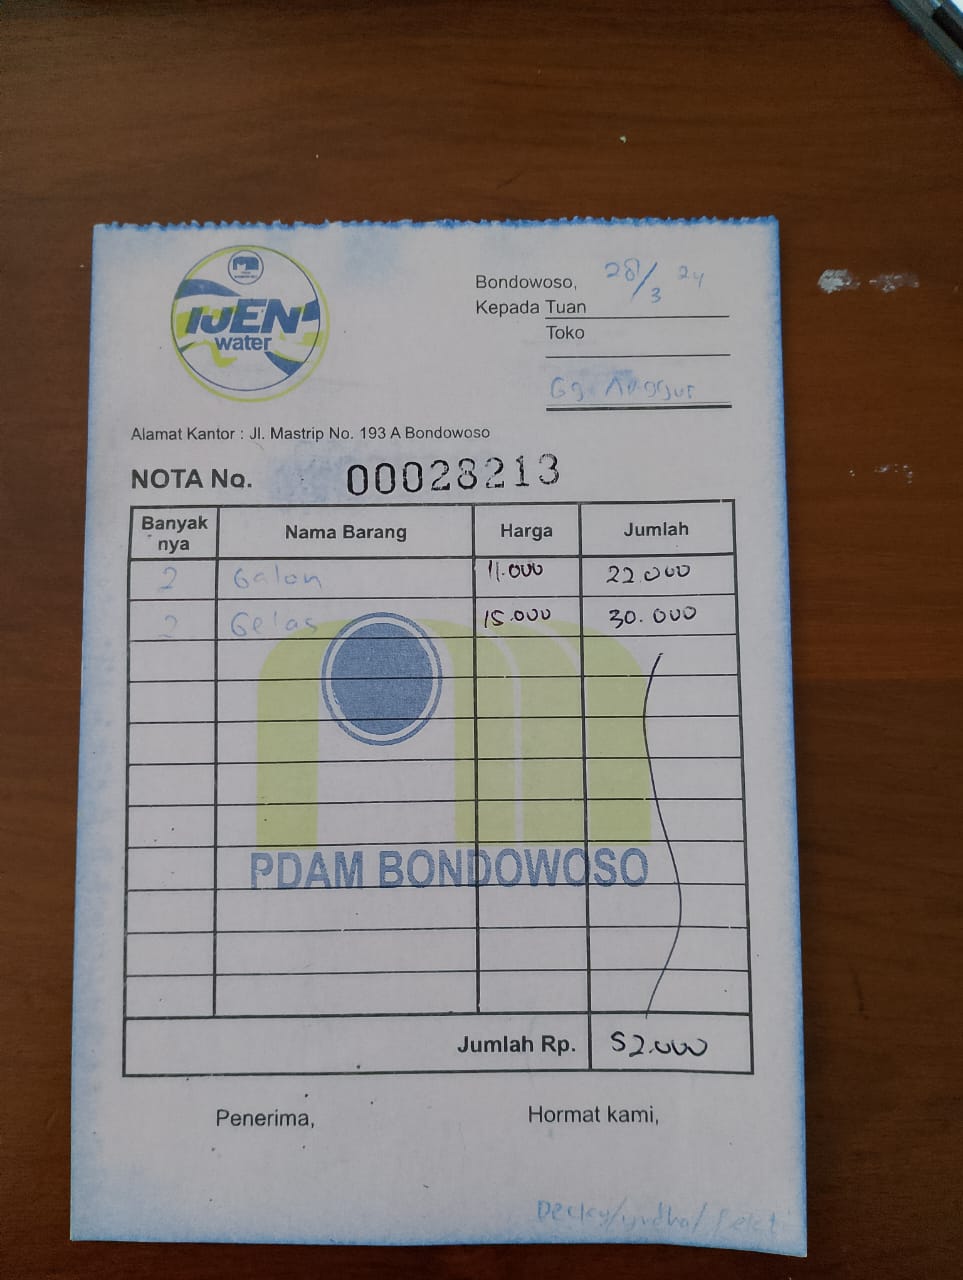 IJEN
water
Bondowoso, 28/3 24
Kepada Tuan
Toko
Gg. Anggur
Alamat Kantor : Jl. Mastrip No. 193 A Bondowoso
NOTA No. 00028213
Banyak nya Nama Barang Harga Jumlah
2 Galon 11.000 22.000
2 Gelas 15.000 30.000
PDAM BONDOWOSO
Jumlah Rp. 52.000
Penerima, Hormat kami,
Decky/